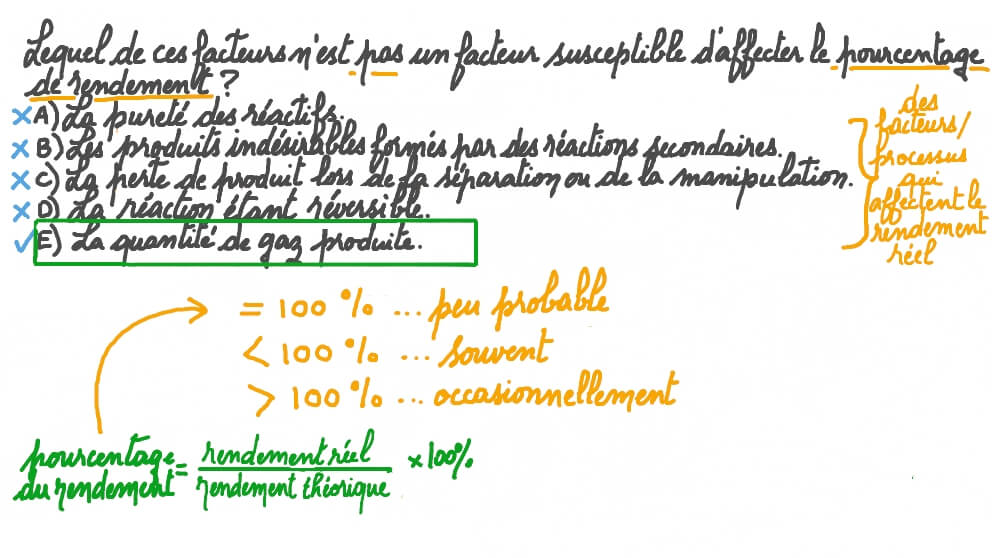 Lequel de ces facteurs n'est pas un facteur susceptible d'affecter le pourcentage
de rendement ?
A) La pureté des réactifs.
B) Les produits indésirables formés par des réactions secondaires.
C) La perte de produit lors de la séparation ou de la manipulation.
D) La réaction étant réversible.
E) La quantité de gaz produite.
des
facteurs/
processus
qui
affectent le
rendement
réel
= 100 % ... peu probable
< 100 % ... souvent
> 100 % ... occasionnellement
pourcentage
du rendement = rendement réel / rendement théorique × 100%